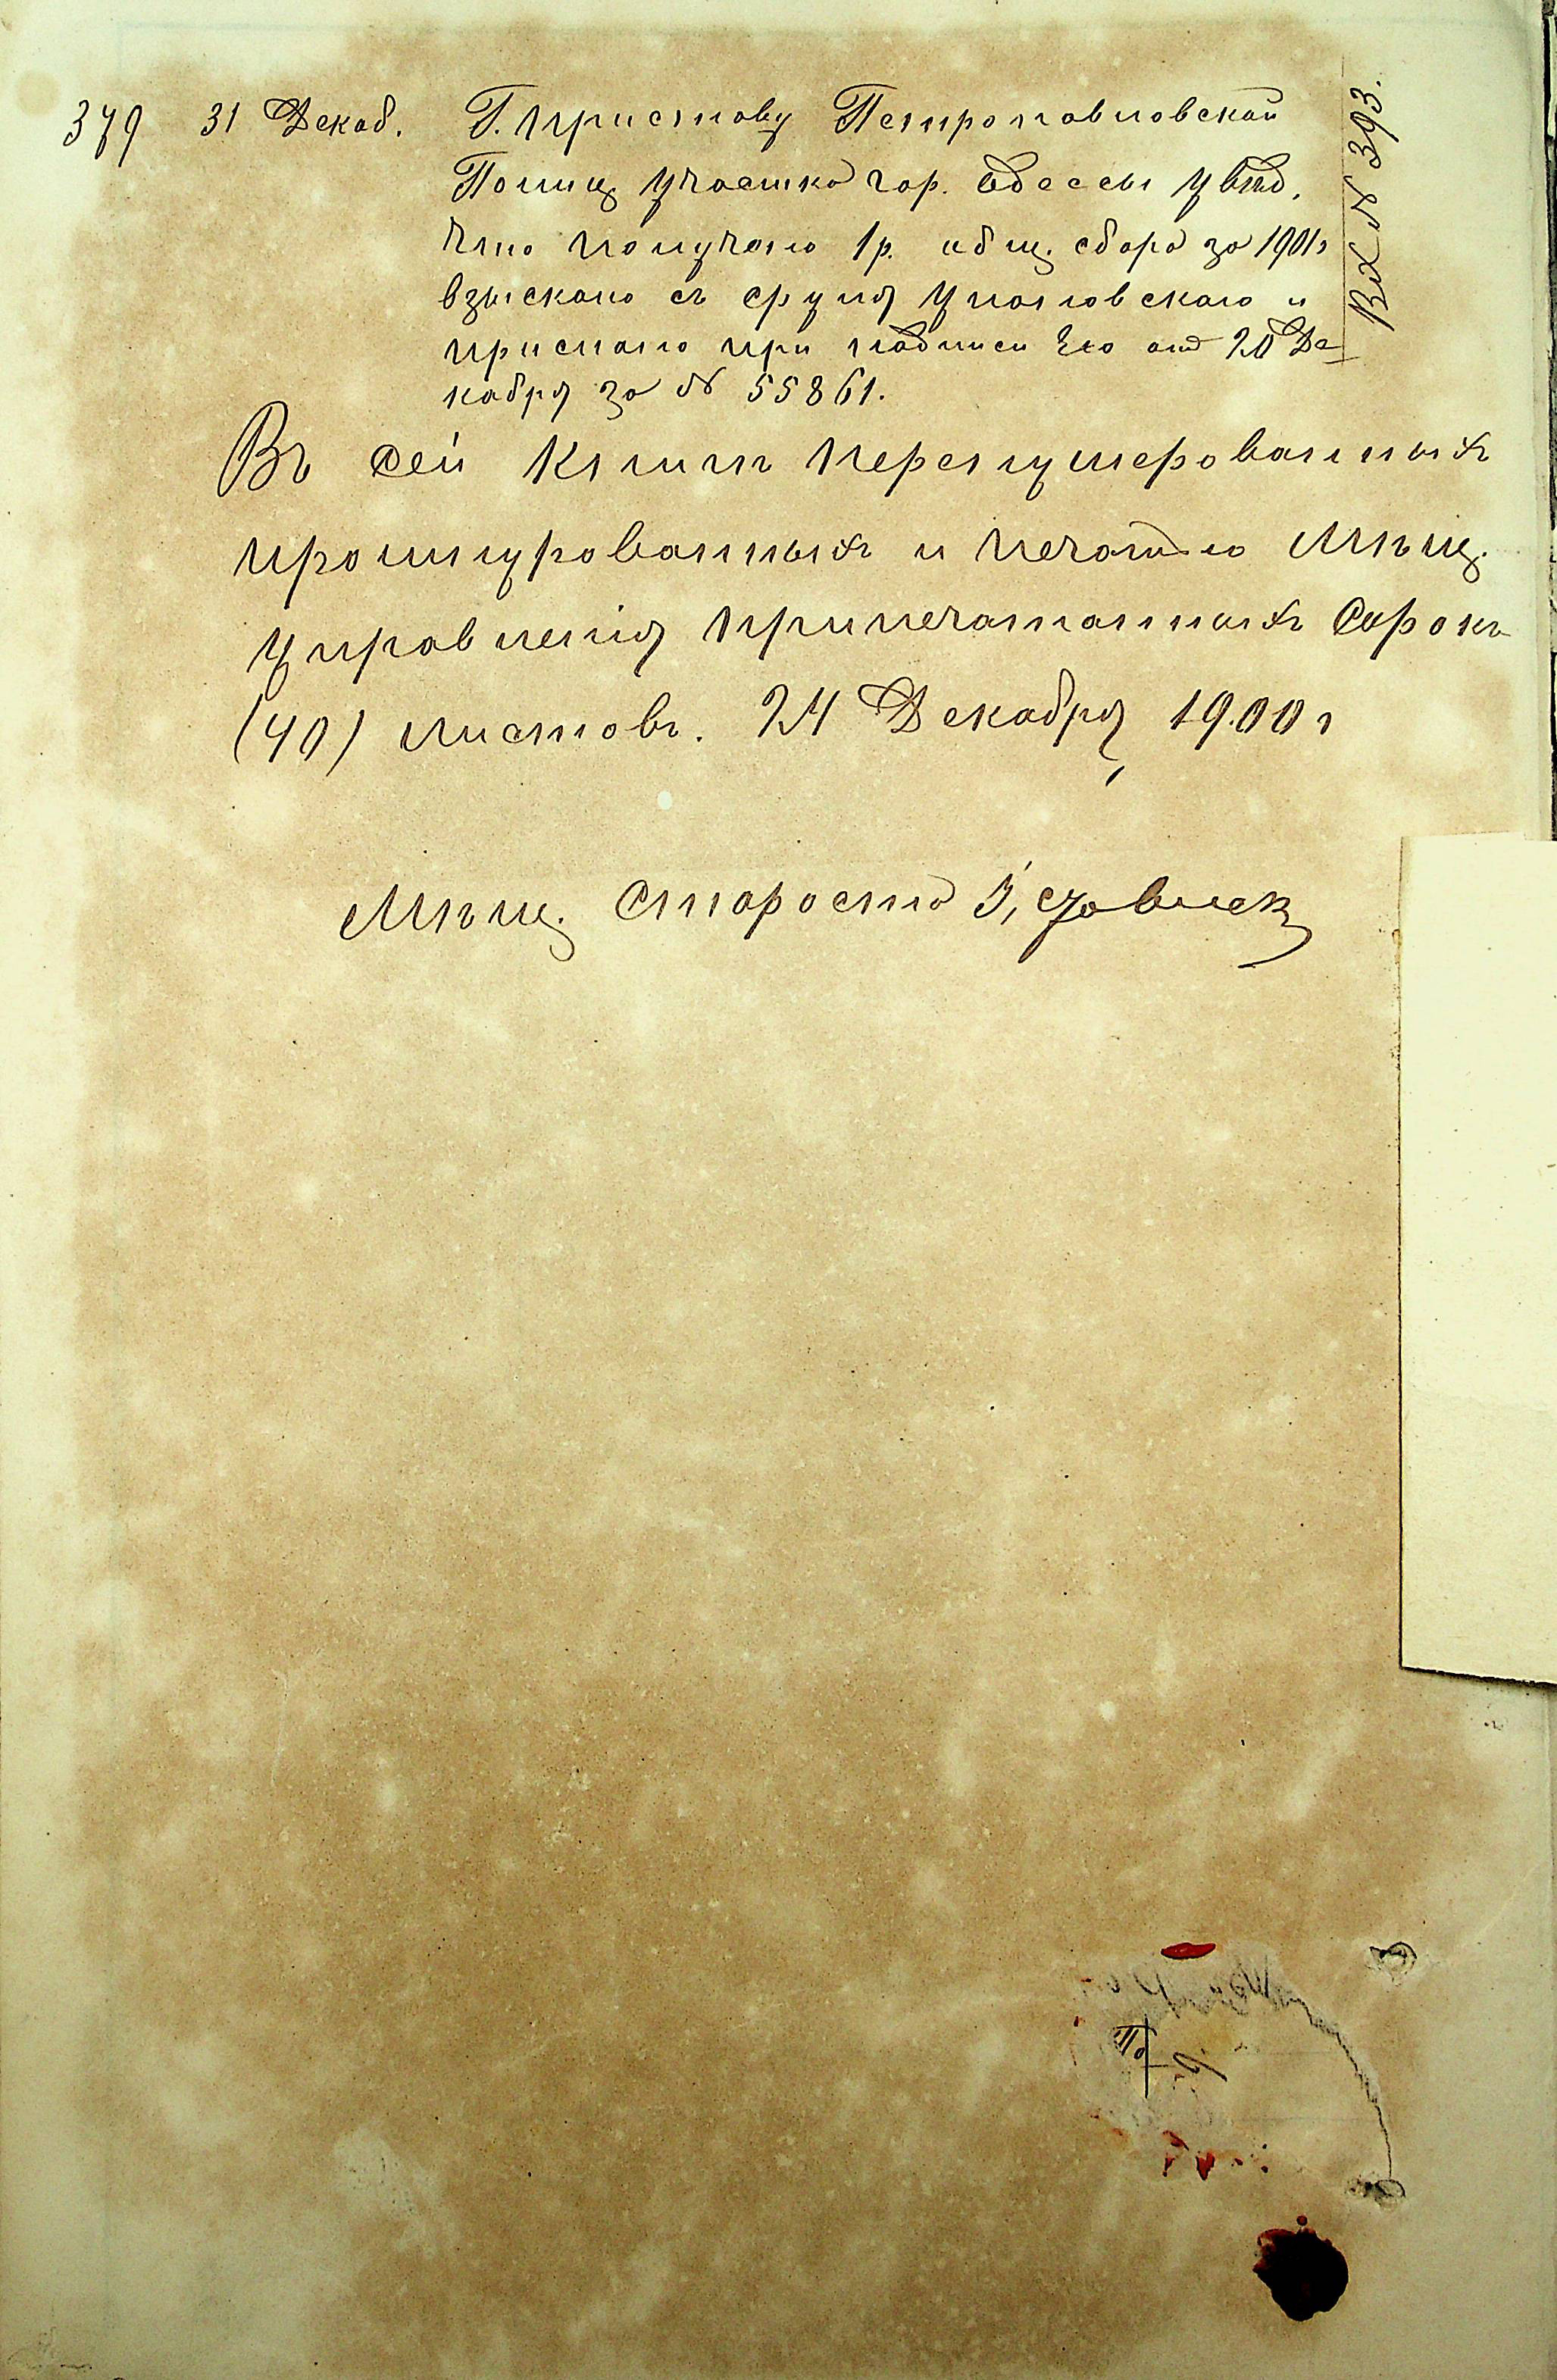 379 31 Декаб. Г. Приставу Петропавловской
Полиц. участка гор. Одессы увѣд.
что получено 1 р. общ. сбора за 1901 г
взыскано съ Уполовскаго и
прислано при надписи его отъ 20 Де-
кабря за № 55861.
Вх № 393.
Въ сей книгѣ перенумерованныхъ
прошнурованныхъ и печатью Мѣщ.
управленія припечатанныхъ сорокъ
(40) листовъ. 24 Декабря 1900 г
Мѣщ. Староста